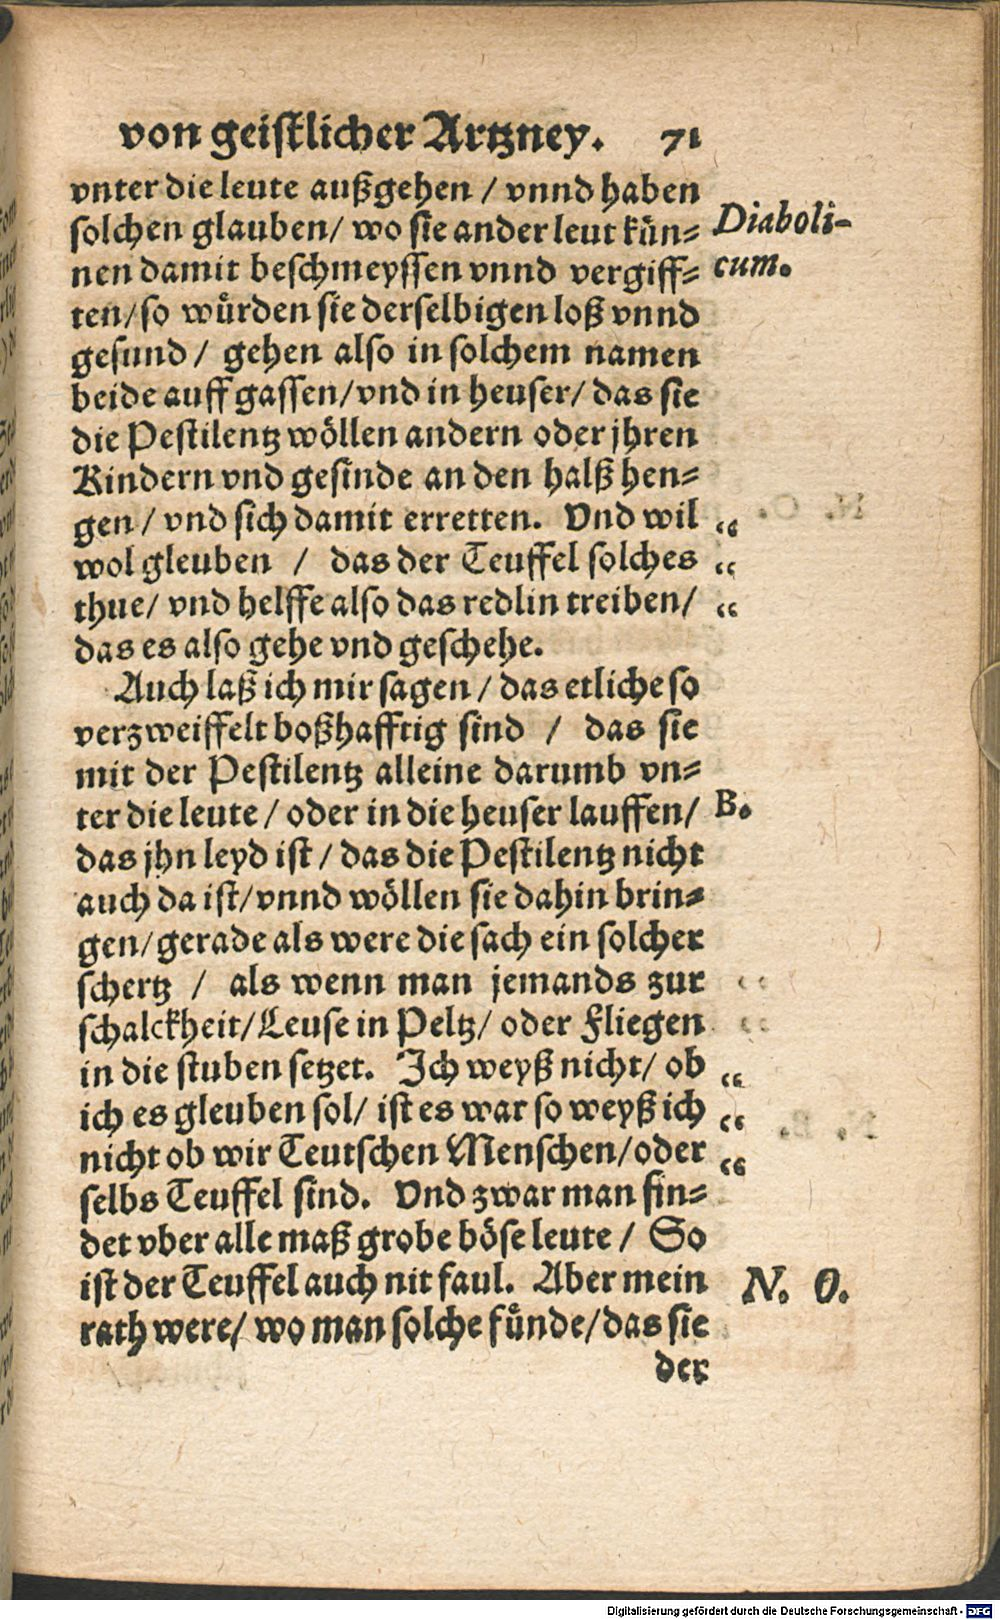 von geistlicher Artzney. 71
vnter die leute außgehen / vnnd haben
solchen glauben/ wo sie ander leut kün⸗
Diaboli-
nen damit beschmeyssen vnnd vergiff⸗
cum.
ten/so würden sie derselbigen loß vnnd
gesund / gehen also in solchem namen
beide auff gassen/vnd in heuser/ das sie
die Pestilentz wöllen andern oder jhren
Kindern vnd gesinde an den halß hen⸗
gen / vnd sich damit erretten. Vnd wil „
wol gleuben / das der Teuffel solches „
thue/ vnd helffe also das redlin treiben/ „
das es also gehe vnd geschehe.
Auch laß ich mir sagen / das etliche so
verzweiffelt boßhafftig sind / das sie
mit der Pestilentz alleine darumb vn⸗
ter die leute / oder in die heuser lauffen/ B.
das jhn leyd ist / das die Pestilentz nicht
auch da ist/ vnnd wöllen sie dahin brin⸗
gen/ gerade als were die sach ein solcher
schertz / als wenn man jemands zur
schalckheit/ Leuse in Peltz/ oder Fliegen
in die stuben setzet. Ich weyß nicht/ ob „
ich es gleuben sol/ ist es war so weyß ich „
nicht ob wir Teutschen Menschen/oder „
selbs Teuffel sind. Vnd zwar man fin⸗
det vber alle maß grobe böse leute / So
ist der Teuffel auch nit faul. Aber mein N. O.
rath were/ wo man solche fünde/das sie
der
Digitalisierung gefördert durch die Deutsche Forschungsgemeinschaft - DFG